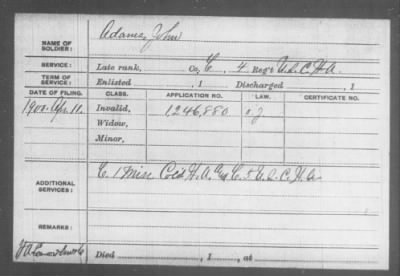 NAME OF SOLDIER: Adams, John
SERVICE: Late rank, Co. E, 4 Reg't U.S.C.H.A.
TERM OF SERVICE: Enlisted , 1 Discharged , 1
DATE OF FILING. CLASS. APPLICATION NO. LAW. CERTIFICATE NO.
Apr. 11. Invalid, 1,246,880
Widow,
Minor,
ADDITIONAL SERVICES: E. 1 Miss. Col'd H.A. & U.S.C.H.A.
REMARKS:
Died , 1 , at